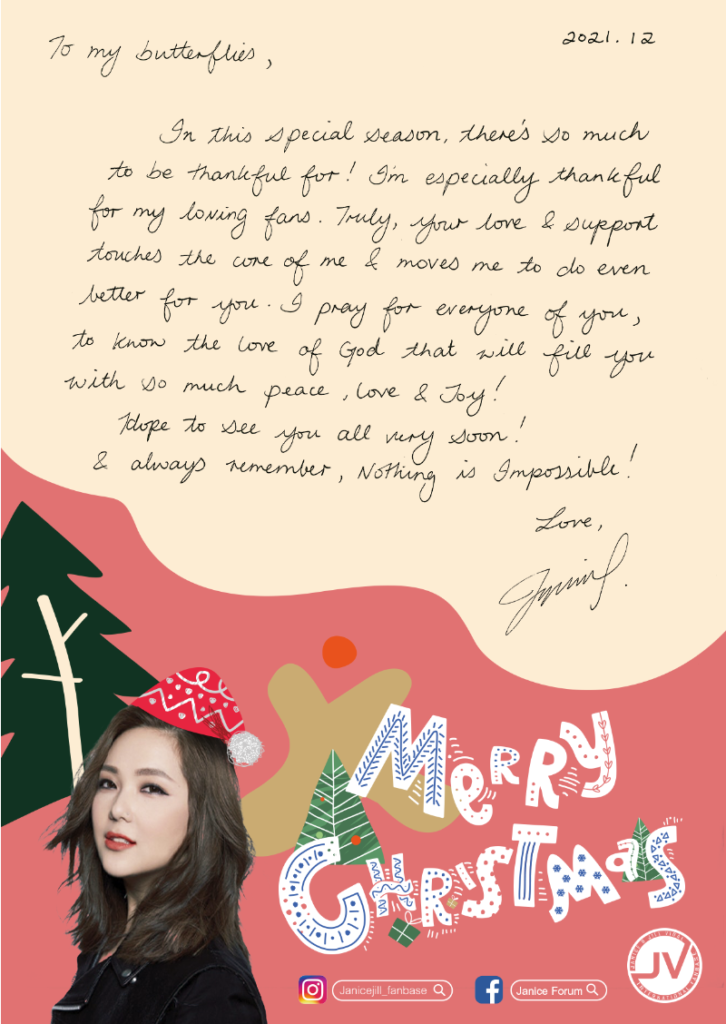 To my butterflies,
2021.12
In this special season, there's so much
to be thankful for! I'm especially thankful
for my loving fans. Truly, your love & support
touches the core of me & moves me to do even
better for you. I pray for everyone of you,
to know the love of God that will fill you
with so much peace, love & Joy!
Hope to see you all very soon!
& always remember, Nothing is Impossible!
Love,
MERRY
CHRISTMaS
Janicejill_fanbase
Janice Forum
JV